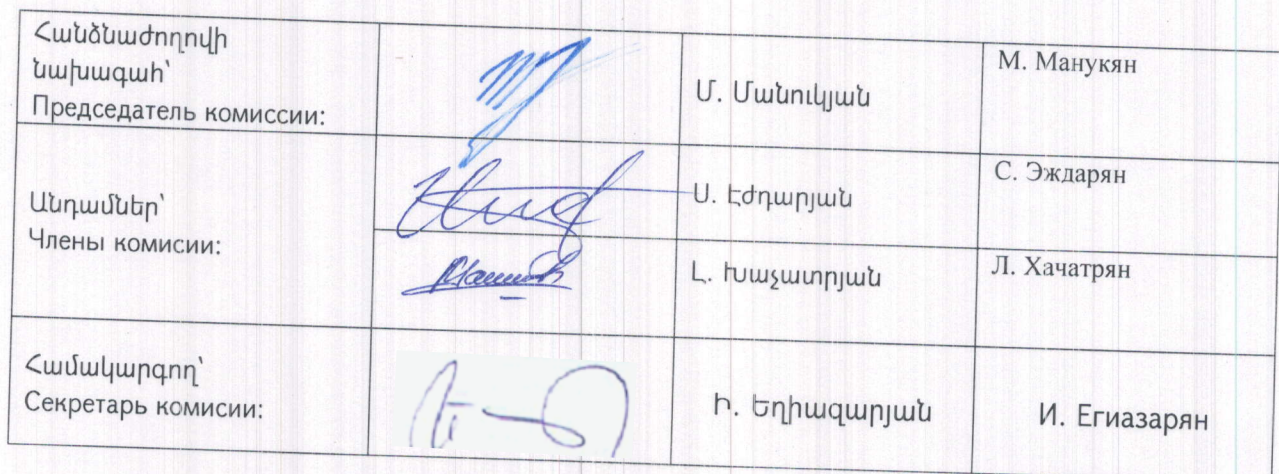 Հանձնաժողովի
նախագահ՝
Председатель комиссии:
Մ. Մանուկյան
М. Манукян
Անդամներ՝
Члены комисии:
Ս. Էժդարյան
С. Эждарян
Լ. Խաչատրյան
Л. Хачатрян
Համակարգող՝
Секретарь комисии:
Ի. Եղիազարյան
И. Егиазарян